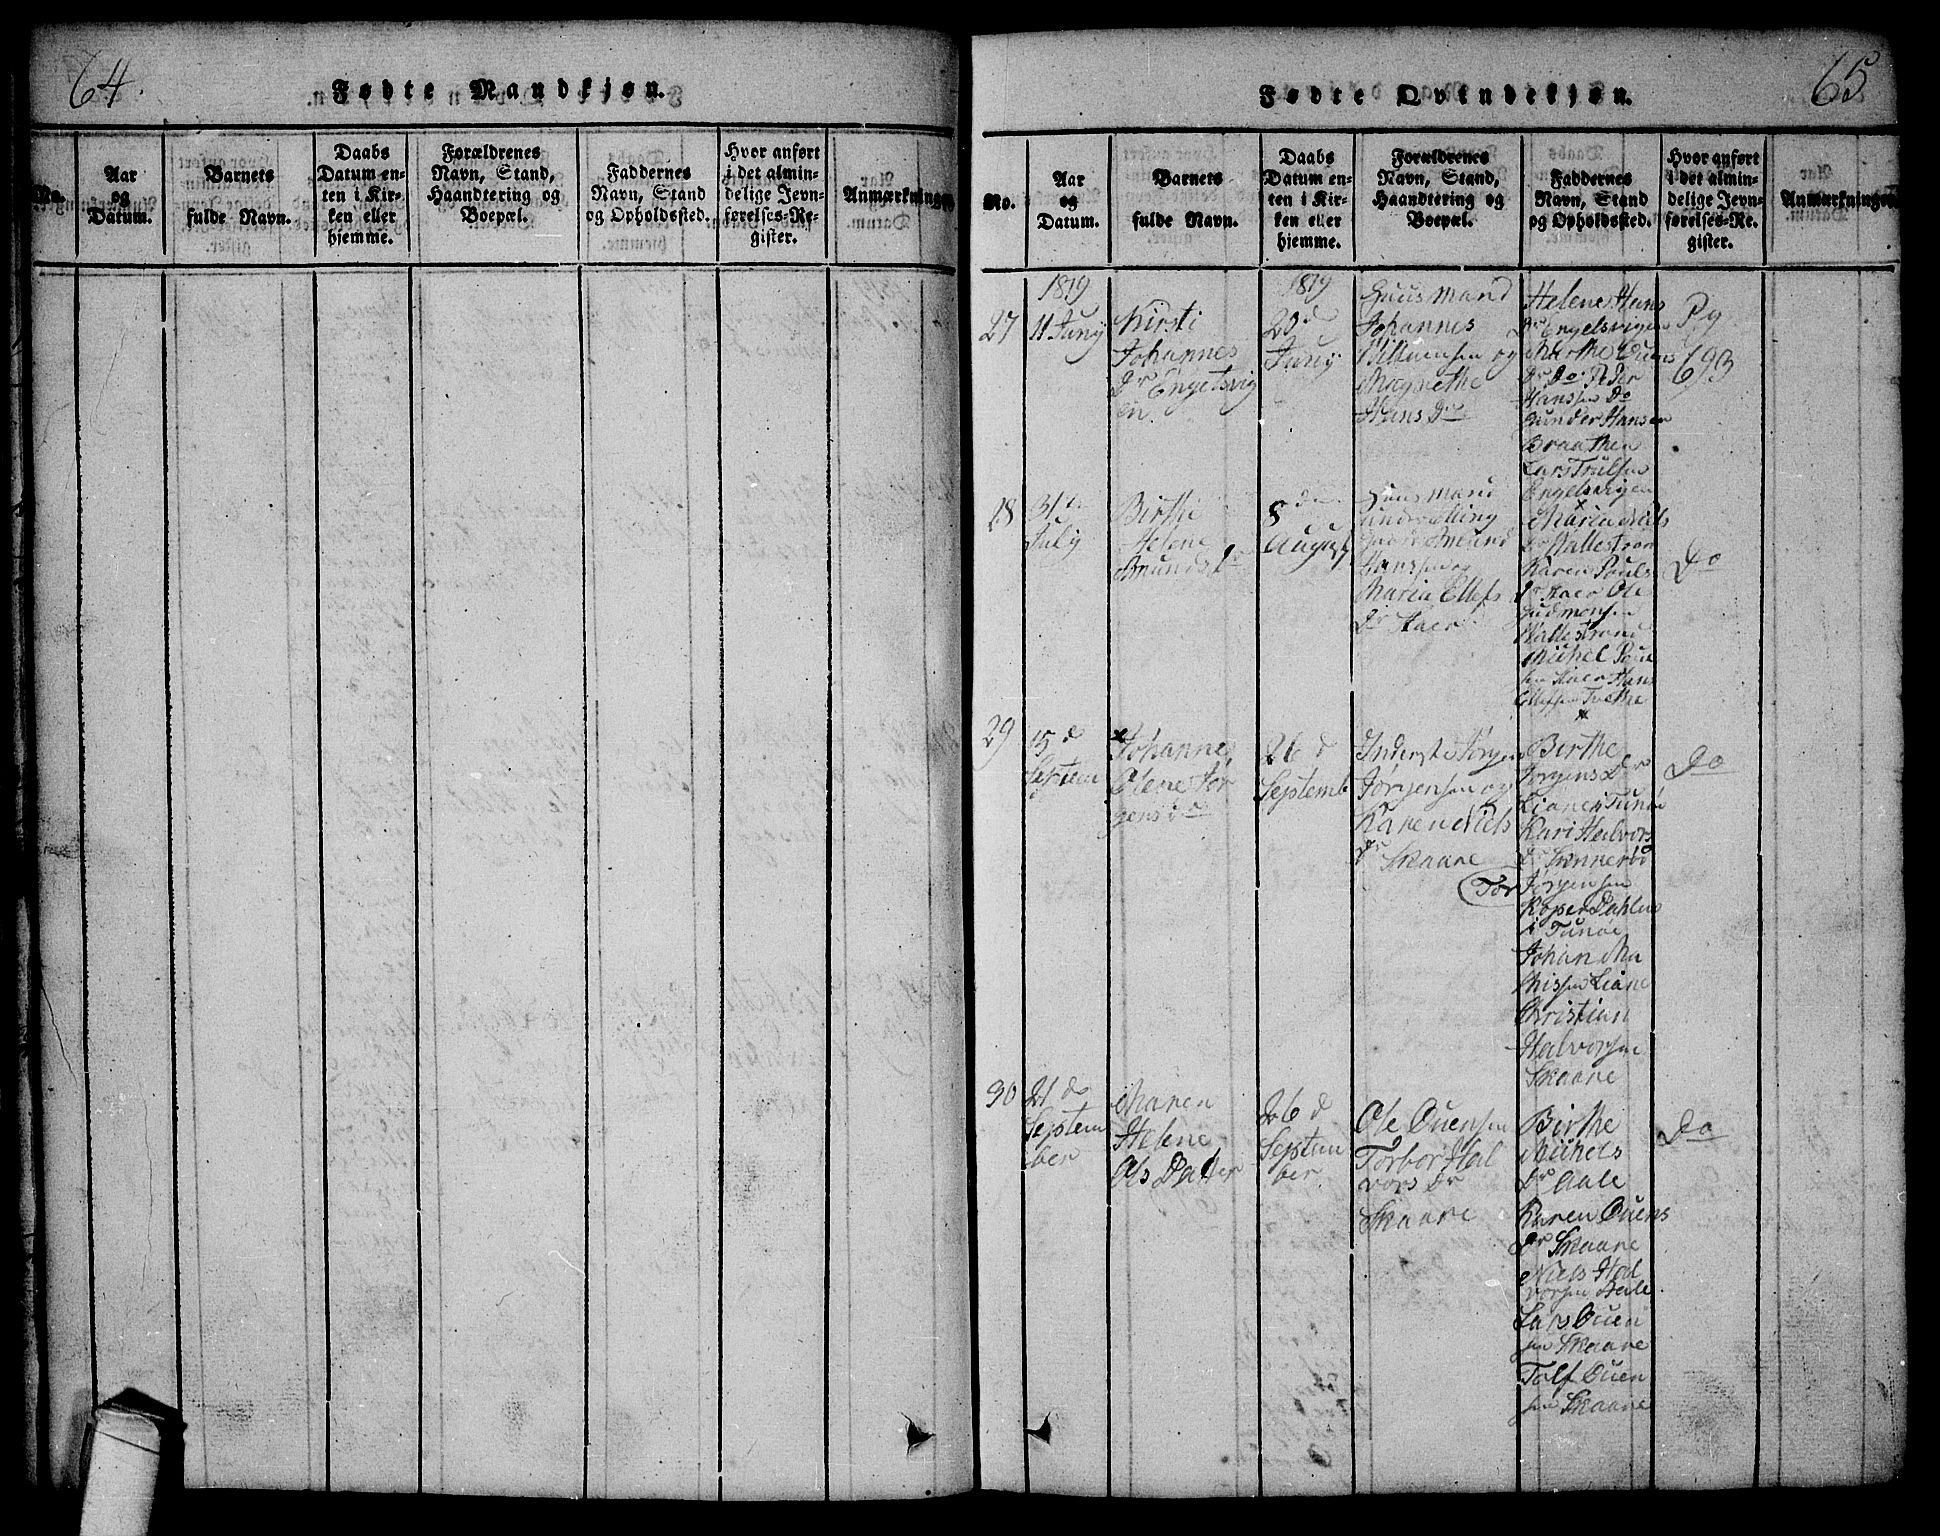 64.
Fødte Mandkjøn.
No.
Aar
og
Datum.
Barnets
fulde Navn.
Daabs
Datum en-
ten i Kir-
ken eller
hjemme.
Forældrenes
Navn, Stand,
Haandtering og
Boepæl.
Faddernes
Navn, Stand
og Opholdsted.
Hvor anført
i det almin-
delige Jevn-
førelses-Re-
gister.
Anmærkninger
65
Fødte Qvindekjøn.
No.
Aar
og
Datum.
Barnets
fulde Navn.
Daabs
Datum en-
ten i Kir-
ken eller
hjemme.
Forældrenes
Navn, Stand,
Haandtering og
Boepæl.
Faddernes
Navn, Stand
og Opholdsted.
Hvor anført
i det almin-
delige Jevn-
førelses-Re-
gister.
Anmærkninger
27
1819
11 Juny
Kirsti
Johannes
Dr Engelsvig
en.
1819
20 d
Juny
Huusmand
Johannes
Willumsen og
Magrethe
Hans Dr
Helene Hans
Dr Engelsvigen
Mirthe Ouens
Dr Do Peder
Hanssen Do
Gunder Hansen
Braathen
Lars Trulsen
Engelsvigen
Pg
693
28
31te
July
Birthe
Helene
Amunds Dr
8 de
August
Huusmand
under Elling
gaard Amund
Hanssen og
Maria Ellefs
Dr Aaer
Maria Niels
Dr Hallestran
Karen Pouls
Dr Aaer Ole
Gudmonsen
Hallestrand
Michel Poul
sen Aaer Hans
Ellefsen Træthe
Do
29
15 d
Septem
Johanne
Olene Jør
gens Dr
26 d
Septemb
Inderste Jørgen
Jørgensen og
Karen Niels
Dr Skaare
Birthe
Jørgens Dr
Liane i Tunøe
Kari Halvors
Dr Sønnerød
Tor Jørgensen
Roper Dahlen
i Tunøe
Johan Ma
thissen Liane
Christian
Halvorsen
Skaare
Do
30
21 de
Septem
ber
Maren
Helene
Ols Datter
26 d
Septem
ber
Ole Ouensen
Torbor Hal
vors Dr
Skaare
Birthe
Michels
Dr Aale
Karen Ouens
Dr Skaare
Niels Hal
vorsen Aale
Lars Ouen
sen Skaare
Tolf Ouen
sen Skaare
Do